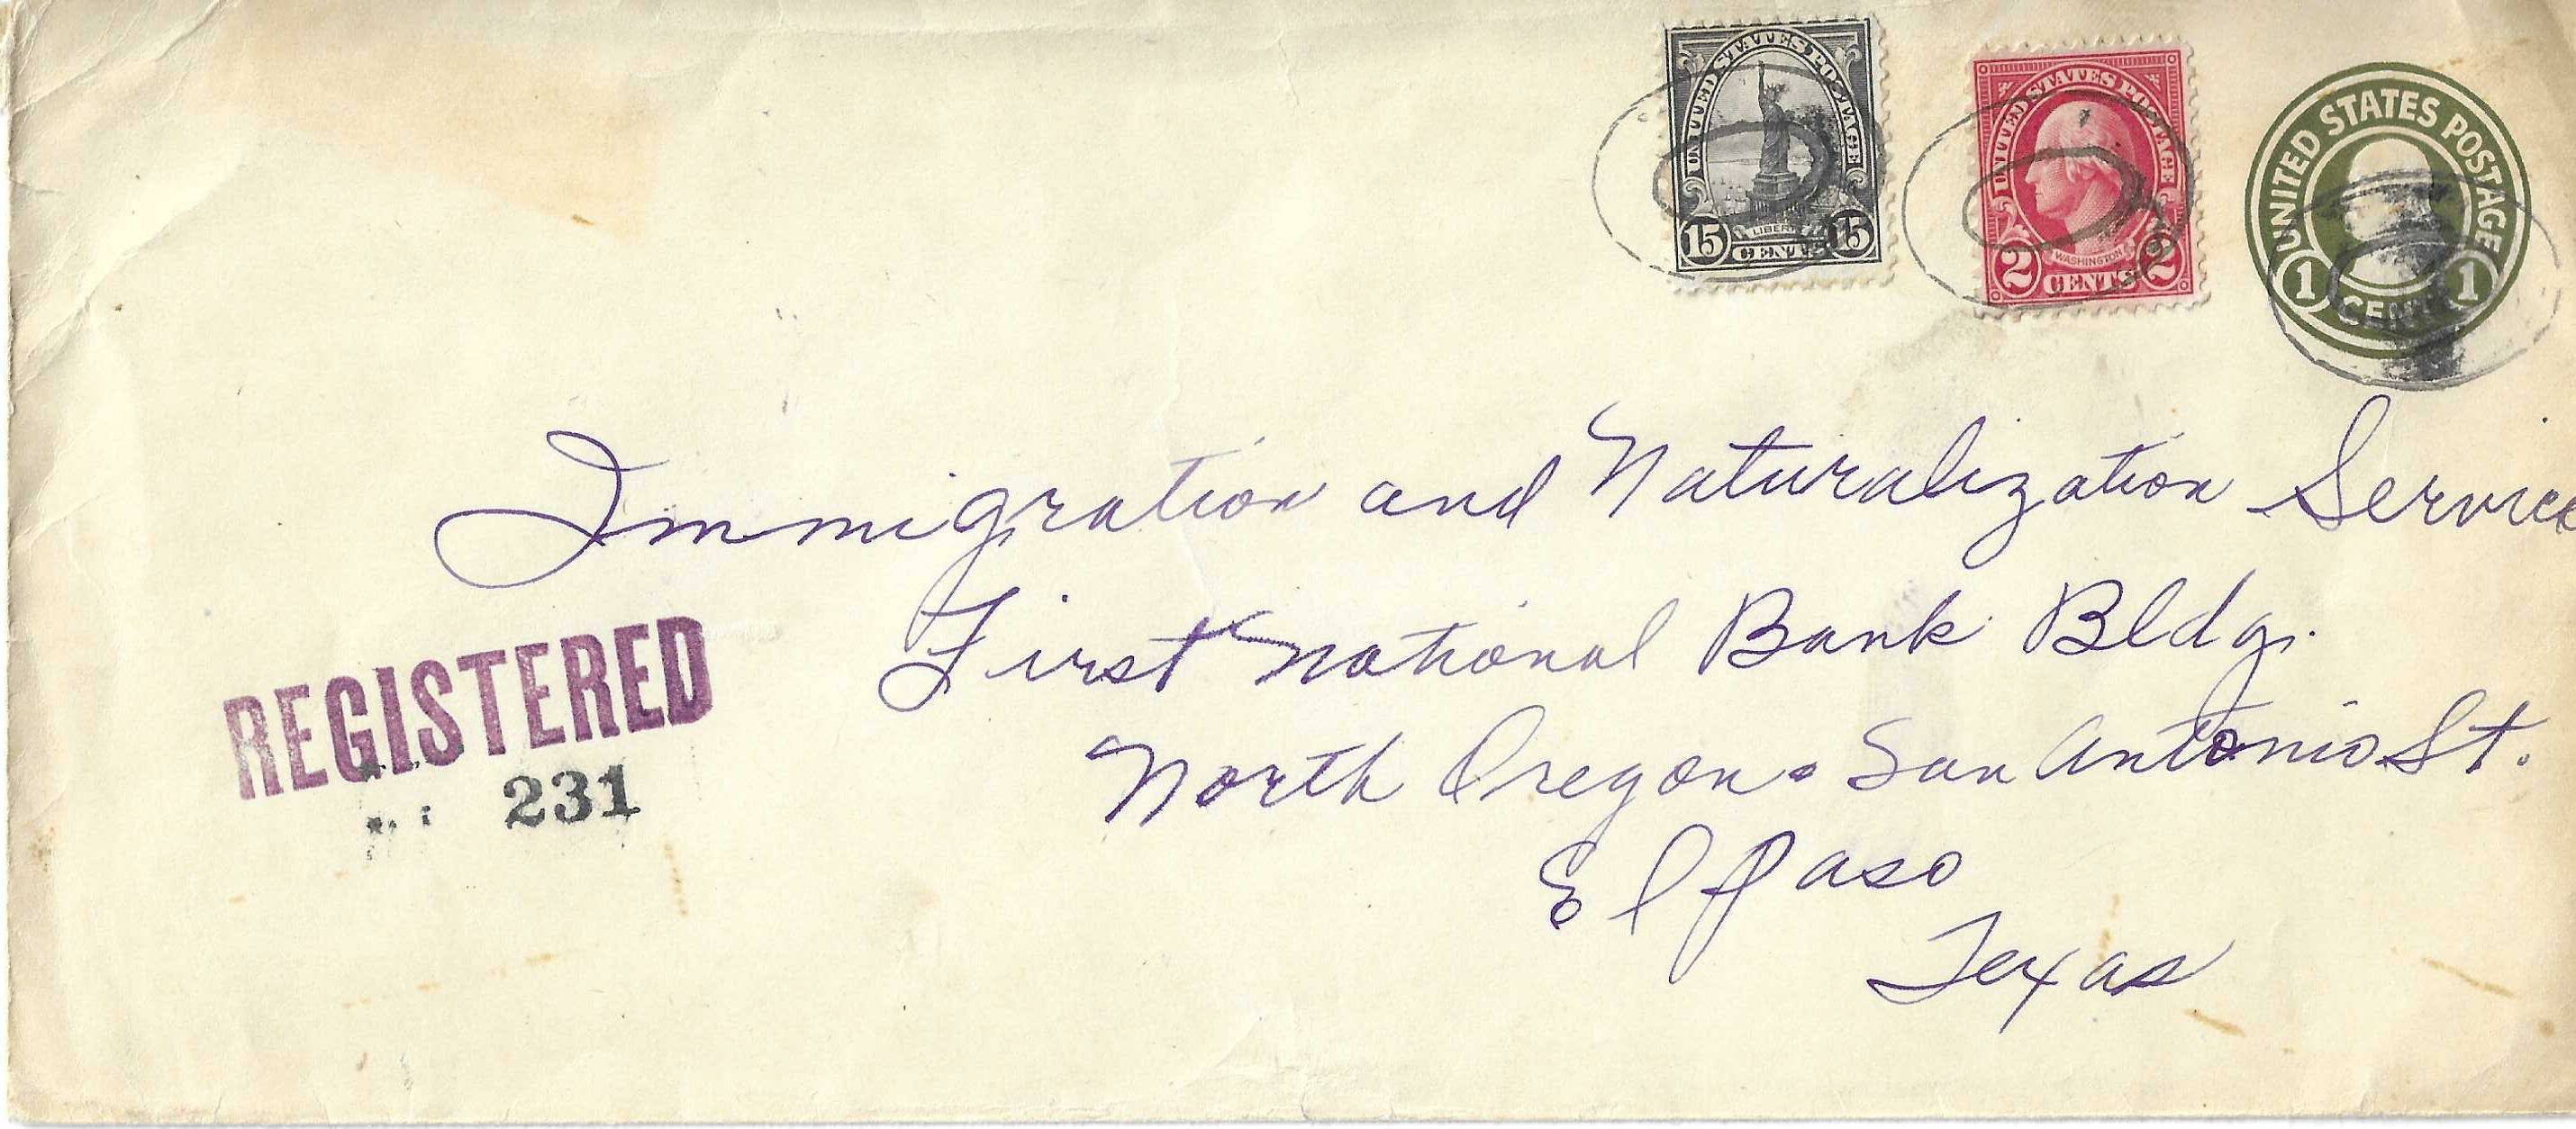 UNITED STATES POSTAGE
LIBERTY
15 CENTS 15
UNITED STATES POSTAGE
WASHINGTON
2 CENTS 2
UNITED STATES POSTAGE
1 CENT 1
Immigration and Naturalization Service
First National Bank Bldg.
North Oregon - San Antonio St.
El Paso
Texas
REGISTERED
231